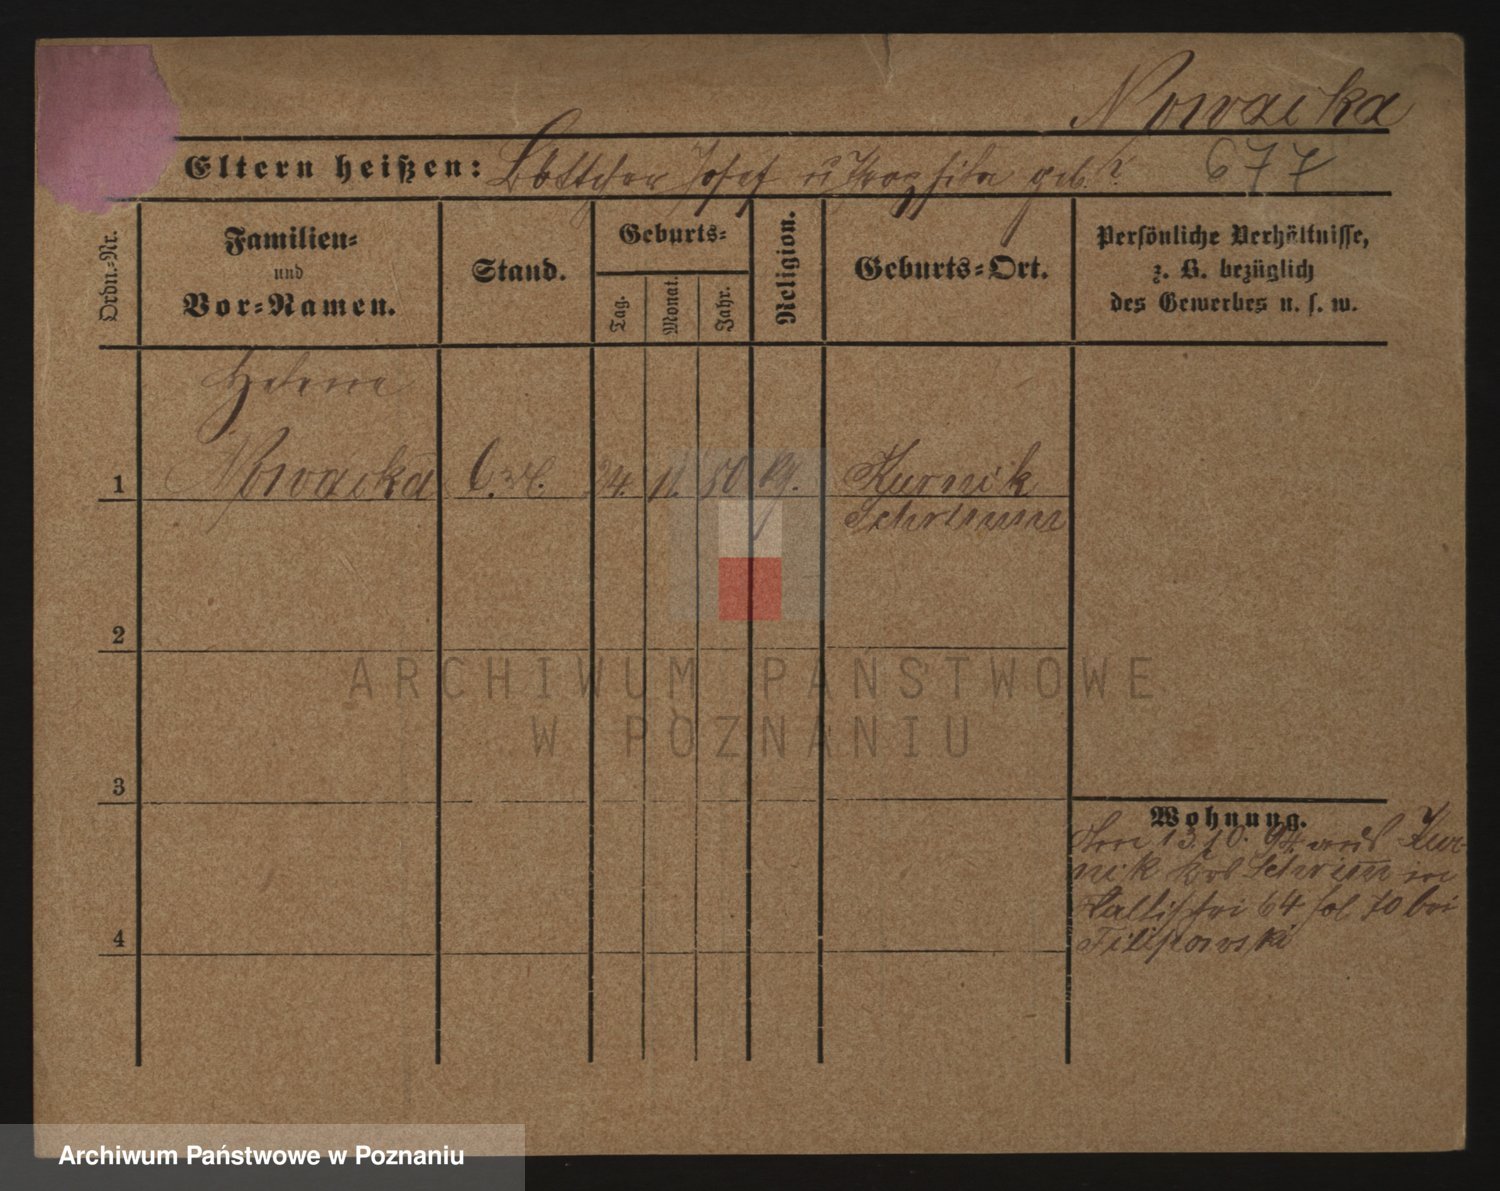 Nowacka
Eltern heißen: Böttcher Josef u Theophila geb. ? 677
Ordn.-Nr.
Familien-
und
Vor-Namen.
Stand.
Geburts-
Tag.
Monat.
Jahr.
Religion.
Geburts-Ort.
Persönliche Verhältnisse,
z. B. bezüglich
des Gewerbes u. s. w.
Helene
1 Nowacka 24. 11. 50 kg. Kurnik
Schrimm
2
3
4
Wohnung.
13.10. 94 aus Kur-
nik Krs Schrimm in
64 bei
Filipowski
ARCHIWUM PAŃSTWOWE
W POZNANIU
Archiwum Państwowe w Poznaniu